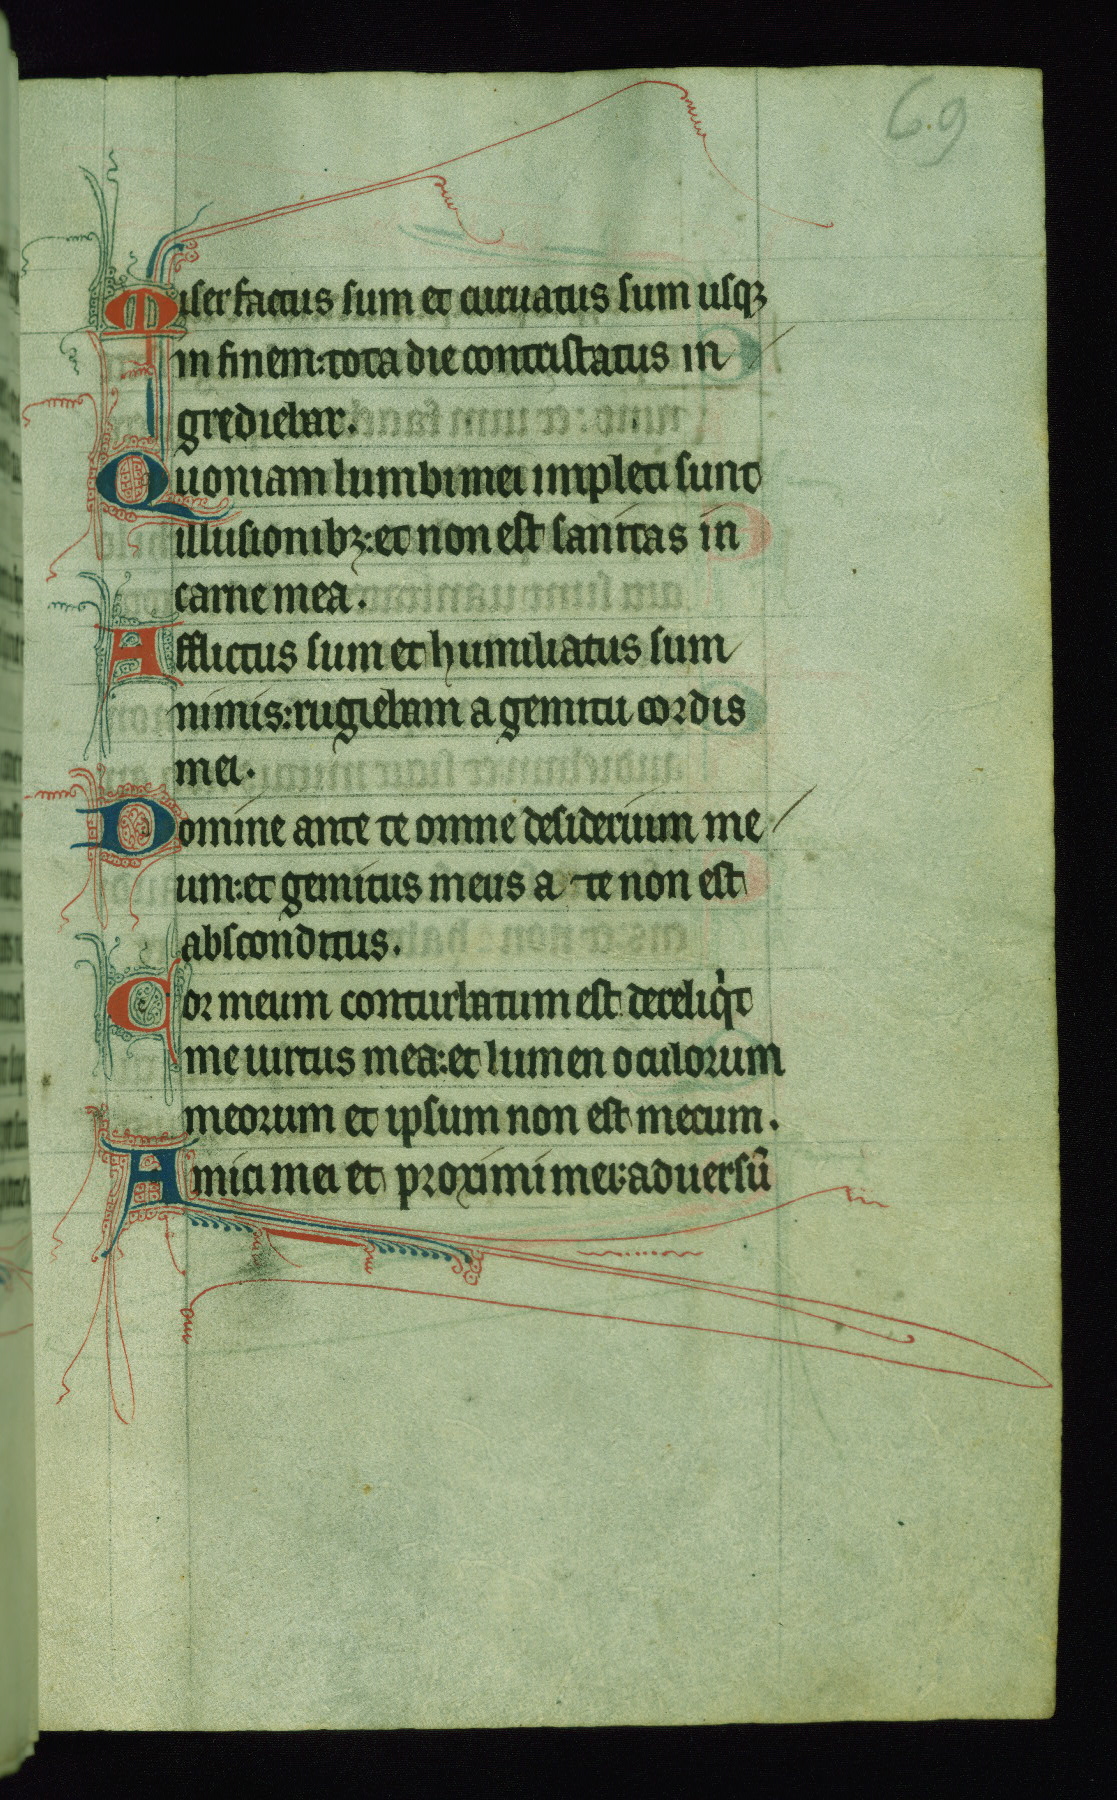 69
Miser factus sum et curuatus sum usqꝫ
in finem: tota die contristatus in
grediebar.
Quoniam lumbi mei impleti sunt
illusionibꝫ: et non est sanitas in
carne mea.
Afflictus sum et humiliatus sum
nimis: rugiebam a gemitu cordis
mei.
Domine ante te omne desiderium me
um: et gemitus meus a te non est
absconditus.
Cor meum conturbatum est dereliqⁱt
me uirtus mea: et lumen oculorum
meorum et ipsum non est mecum.
Amici mei et proximi mei: aduersū